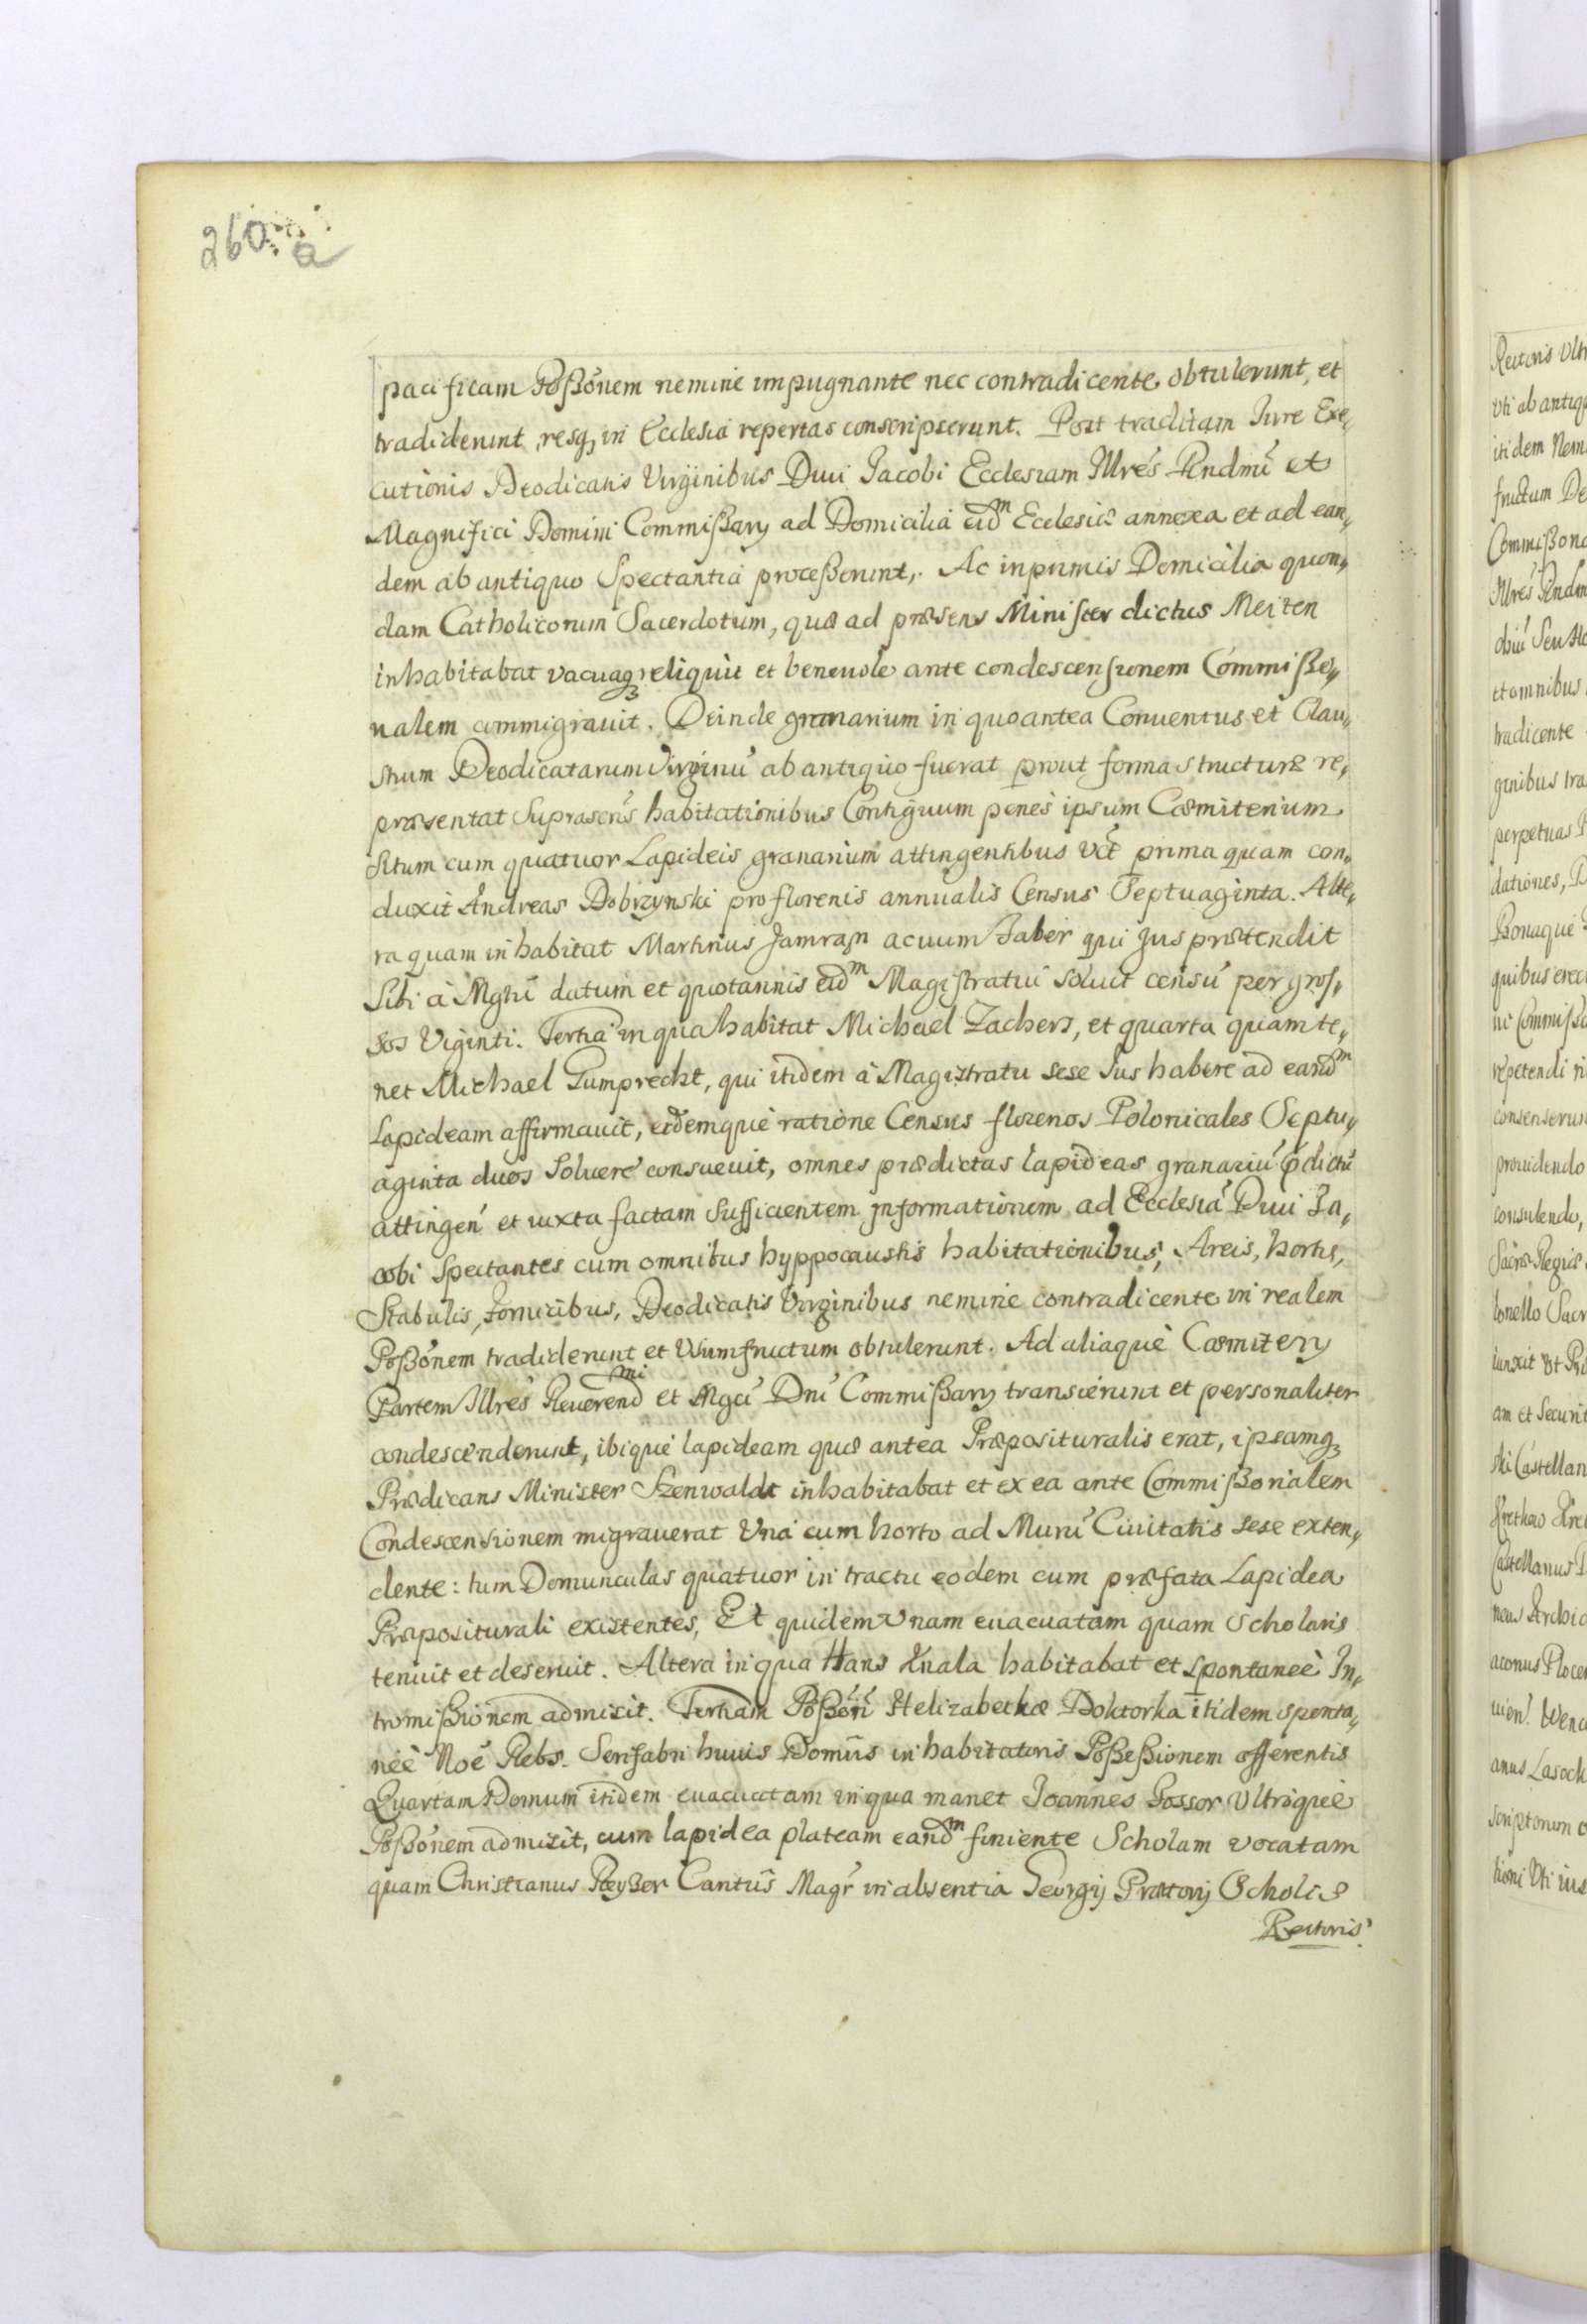 260.a
pacificam Poßónem nemine impugnante nec contradicente obtulerunt, et
tradiderunt, resq, in Ecclesia repertas conscripserunt. Post traditam Iure Exe,,
cutionis Deodicatis Virginibus Diui Jacobi Ecclesiam Illres Rndmi et
Magnifici Domini Commißarij ad Domicilia eidm Ecclesiæ annexa et ad ean,,
dem ab antiquo Spectantia proceßerunt, Ac inprimis Domicilia quon,,
dam Catholicorum Sacerdotum, quæ ad præsens Minister dictus Meiten
inhabitabat vacuaq reliquit et beneuole ante condescensionem Commißo,,
rialem commigrauit. Deinde granarium in quo antea Conuentus et Clau,,
strum Deodicatarum Virginū ab antiquo fuerat prout forma structuræ re,,
præsentat Suprascris habitationibus Contiguum penes ipsum Cæmiterium
situm cum quatuor Lapideis granarium attingentibus vct prima quam con,,
duxit Andreas Dobrzynski pro florenis annualis Census Septuaginta. Alte,,
ra quam inhabitat Martinus Jamrasn acuum Faber qui Jus prætendit
Sibi à Mgrū datum et quotannis eidm Magistratui soluit censū per gros,,
sos Viginti. Tertia in qua habitat Michael Zachers, et quarta quam te,,
net Michael Gumprecht, qui itidem à Magistratu sese Ius habere ad eandm
Lapideam affirmauit, eidemque ratione Census florenos Polonicales Septu,,
aginta duos Soluere consueuit, omnes prædictas lapideas granariū pdictū
attingen et iuxta factam sufficientem informationem ad Ecclesiā Diui Ja,,
cobi Spectantes cum omnibus hyppocaustis habitationibus, Areis, hortis,
Stabulis, fornicibus, Deodicatis Virginibus nemine contradicente in realem
Poßónem tradiderunt et Vsumfructum obtulerunt. Ad aliaque Cæmiterij
Partem Illres Reuerendmi et Mgci Dni Commißarij transierunt et personaliter
condescenderunt, ibique lapideam quæ antea Præposituralis erat, ipsamq
Prædicans Minister Szenwaldt inhabitabat et ex ea ante Commißorialem
Condescensionem migrauerat Vna cum horto ad Murū Ciuitatis sese exten,,
dente: tum Domunculas quatuor in tractu eodem cum præfata Lapidea
Præpositurali existentes, Et quidem vnam euacuatam quam Scholaris
tenuit et deseruit. Altera in qua Hans Knala habitabat et spontaneè In,,
tromißionem admisit. Tertiam Poßori Helizabethæ Doktorka itidem sponta,,
neè Noe Rebs. Serifabri huius Domūs inhabitatoris Poßeßionem offerentis
Quartam Domum itidem euacuatam in qua manet Joannes Fossor Vltroque
Poßónem admisit, cum lapidea plateam eandm finiente Scholam vocatam
quam Christianus Reyser Cantus Magr in absentia Georgij Prætorij Scholæ
Rectoris